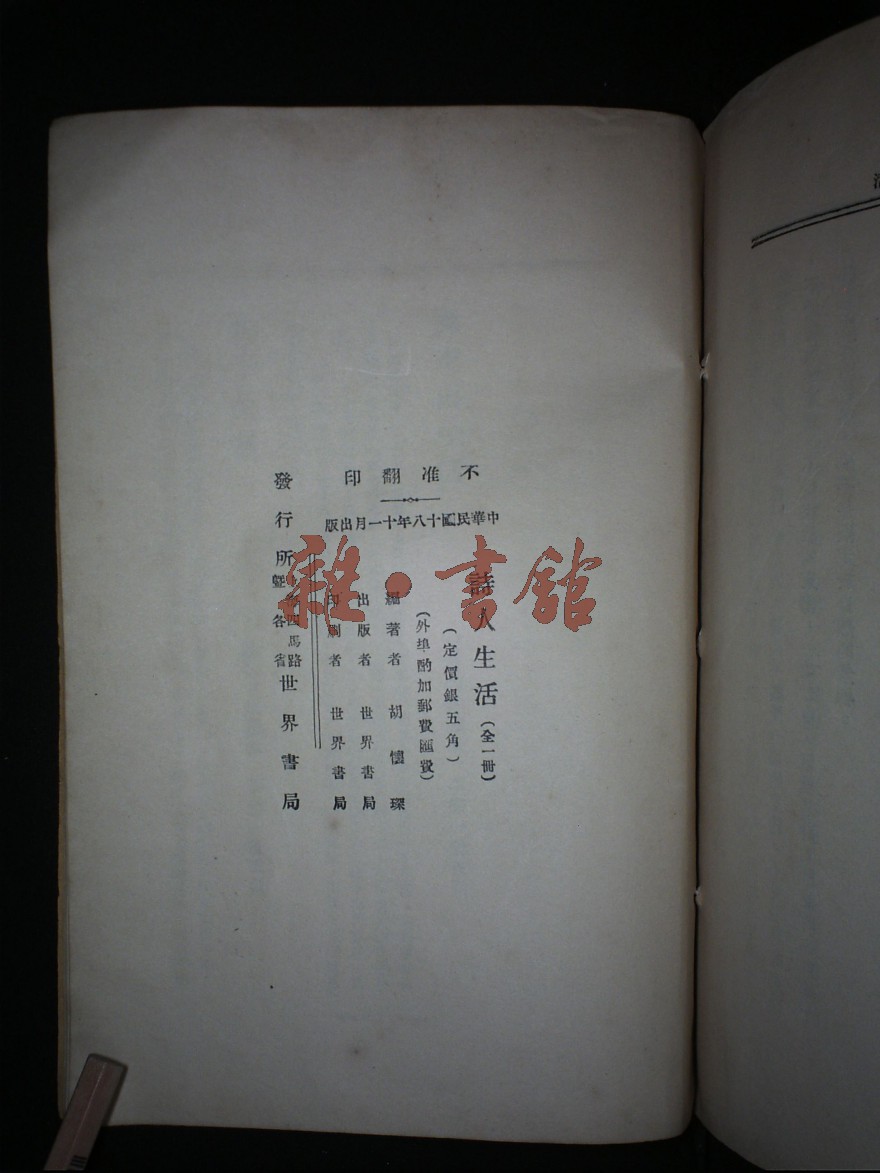 不准翻印
中華民國十八年十一月出版
詩人生活（全一冊）
（定價銀五角）
（外埠酌加郵費匯費）
編著者 胡懷琛
出版者 世界書局
印刷者 世界書局
發行所 四馬路暨各省 世界書局
雜·書館